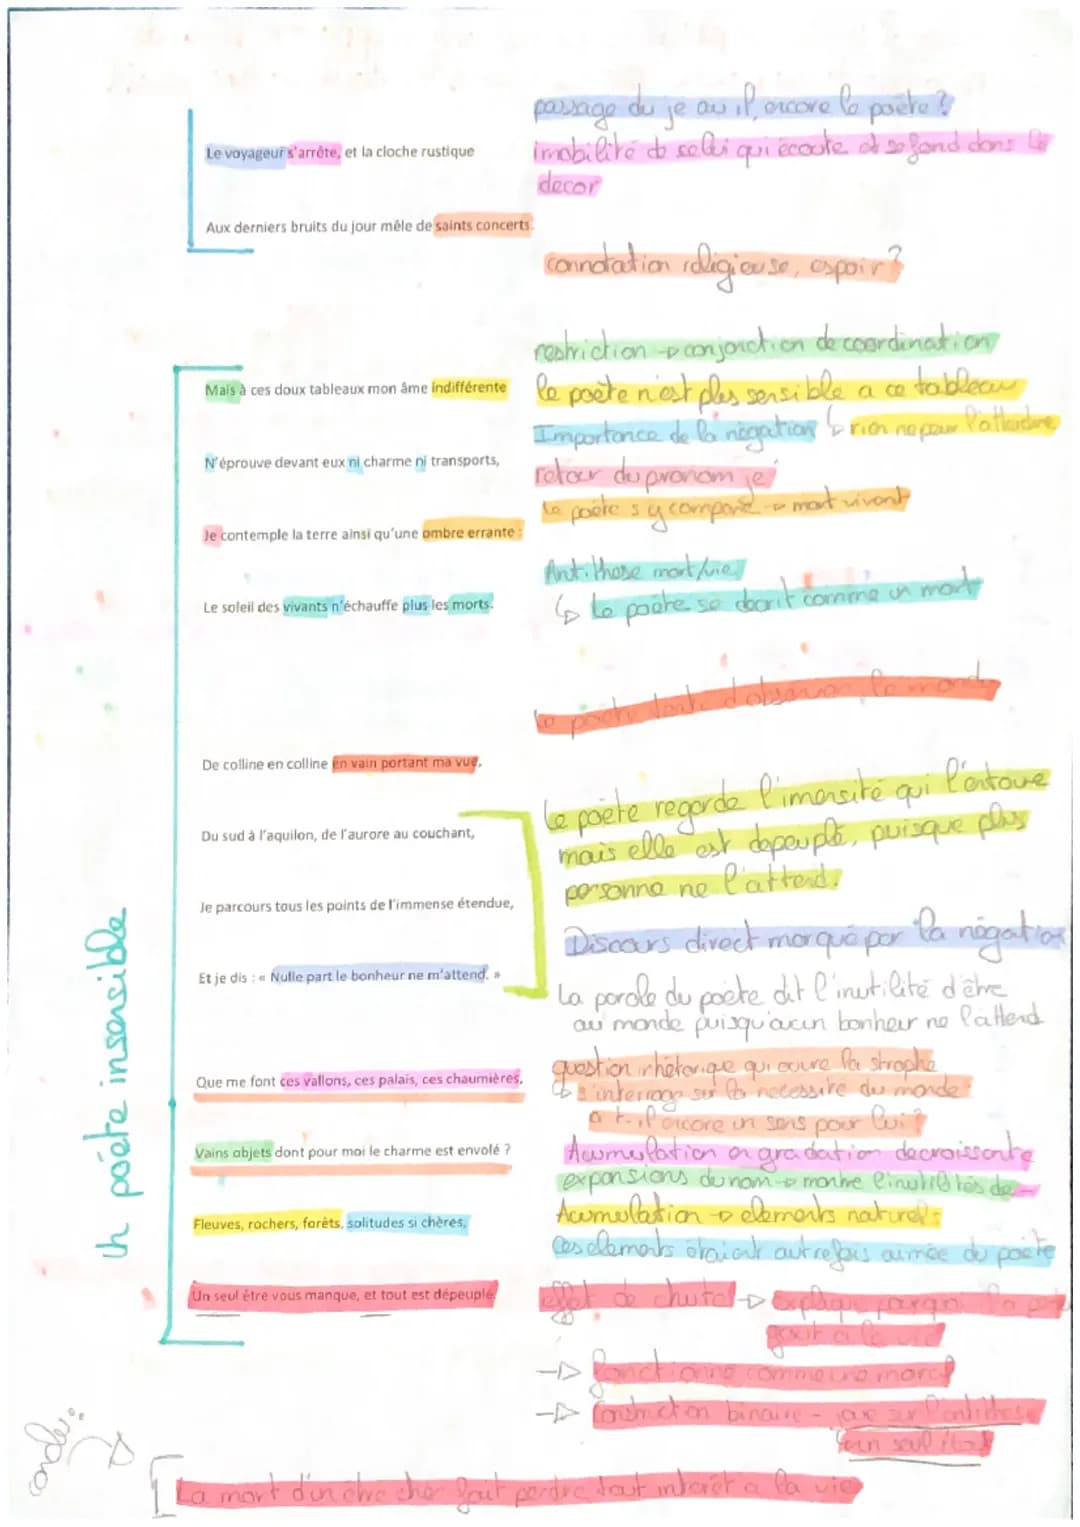 passage du je au il, encore le poète ?
Le voyageur s'arrête, et la cloche rustique
imobilité de celui qui écoute et se fond dans le
decor
Aux derniers bruits du jour mêle de saints concerts.
connotation religieuse, espoir ?
restriction → conjonction de coordination
Mais à ces doux tableaux mon âme indifférente
le poète n'est plus sensible a ce tableau
Importance de la négation ↳ rien ne peux l'atteindre
N'éprouve devant eux ni charme ni transports,
retour du pronom je
le poète s'y compare → mort vivant
Je contemple la terre ainsi qu'une ombre errante :
Antithese mort/vie
Le soleil des vivants n'échauffe plus les morts.
↳ Le poète se decrit comme un mort
le poète tente d'observer le monde
De colline en colline en vain portant ma vue,
Le poète regarde l'imensité qui l'entoure
Du sud à l'aquilon, de l'aurore au couchant,
mais elle est depeuplé, puisque plus
personne ne l'attend.
Je parcours tous les points de l'immense étendue,
Discours direct marqué par la négation
Et je dis : « Nulle part le bonheur ne m'attend. »
La parole du poète dit l'inutilité d'être
au monde puisqu'aucun bonheur ne l'attend
un poète insensible
question rhétorique qui ouvre la strophe
Que me font ces vallons, ces palais, ces chaumières,
↳ s'interroge sur la necessité du monde
a t-il encore un sens pour lui ?
Vains objets dont pour moi le charme est envolé ?
Accumulation en gradation decroissante
expansions du nom → montre l'inutilités de
Fleuves, rochers, forêts, solitudes si chères,
Accumulation → elements naturels
Ces elements étaient autrefois aimée du poète
Un seul être vous manque, et tout est dépeuplé.
effet de chute → explique pourquoi la
gout a la vie
→ fonctionne comme une morale
→ Construction binaire - axe sur l'antithese
"un seul être"
conclu :
La mort d'un etre cher fait perdre tout interêt a la vie